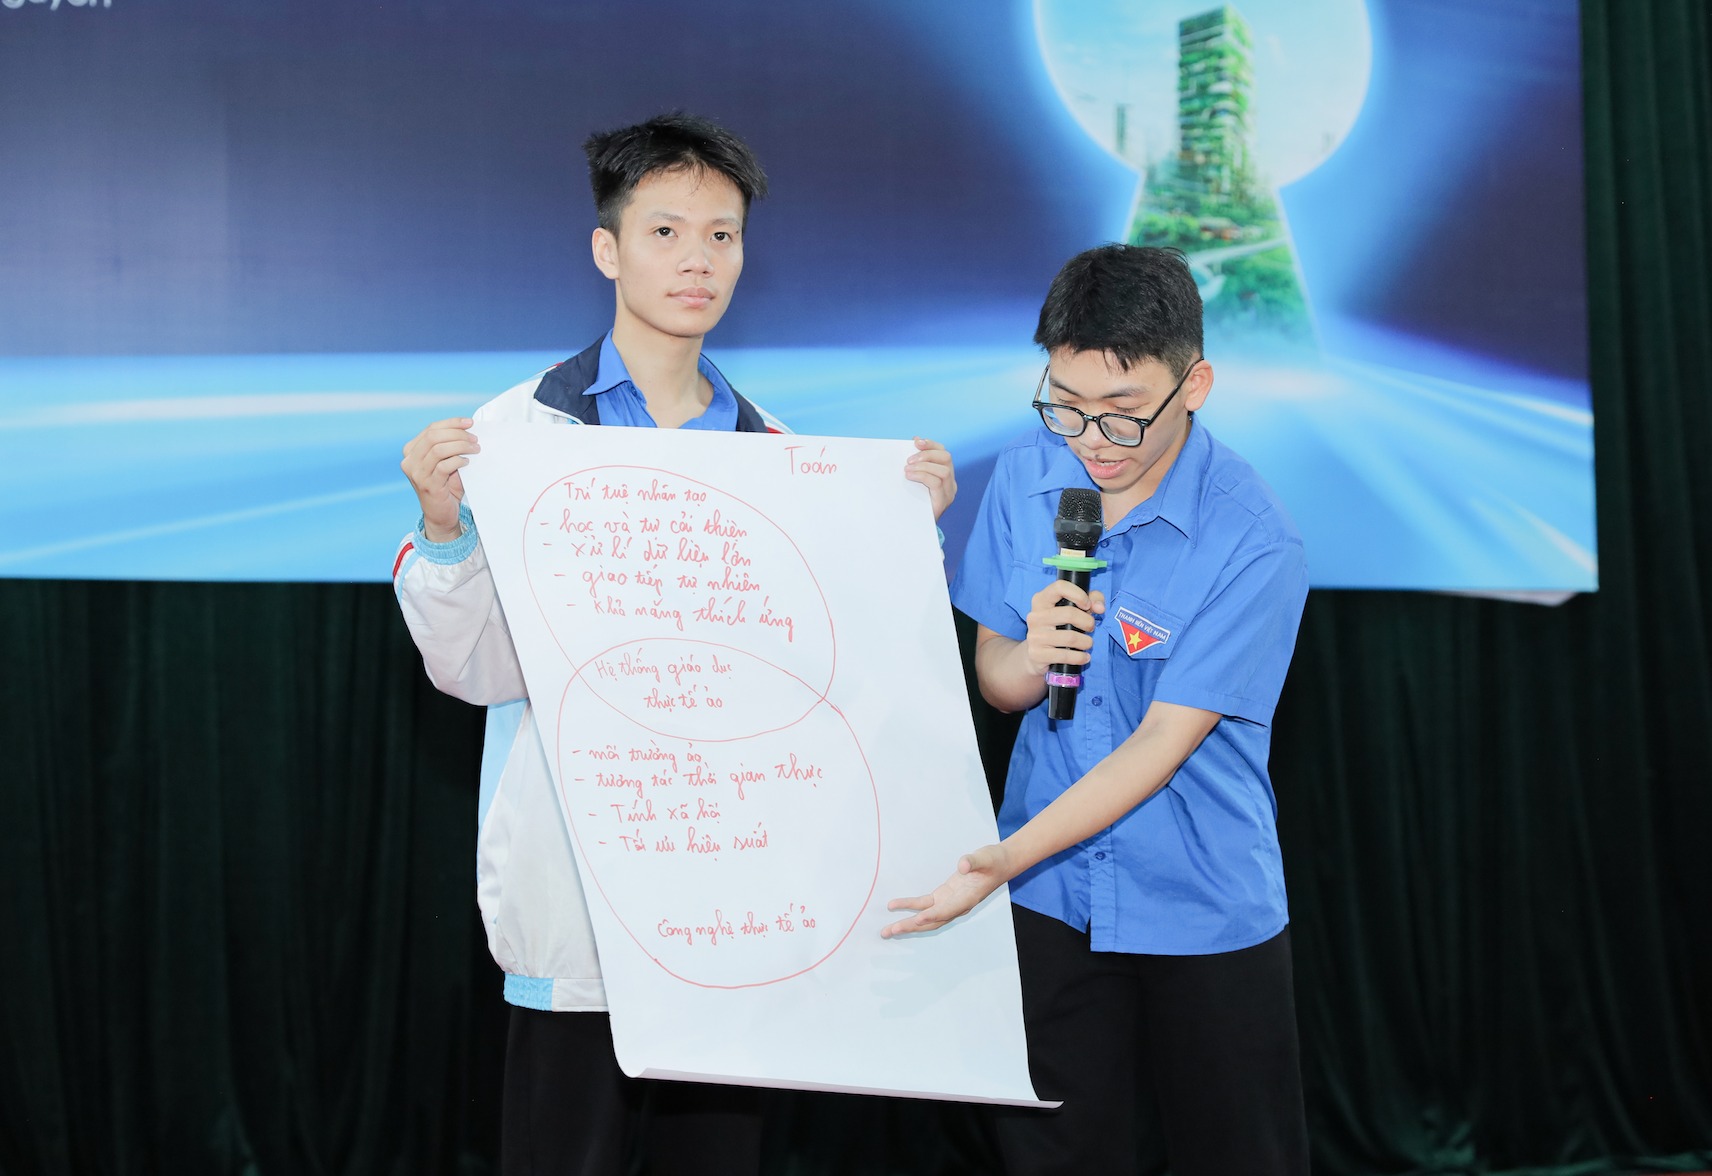 Toán
Trí tuệ nhân tạo
- học và tự cải thiện
- xử lí dữ liệu lớn
- giao tiếp tự nhiên
- khả năng thích ứng
Hệ thống giáo dục
thực tế ảo
- môi trường ảo
- tương tác thời gian thực
- Tính xã hội
- Tối ưu hiệu suất
công nghệ thực tế ảo
THANH NIÊN VIỆT NAM